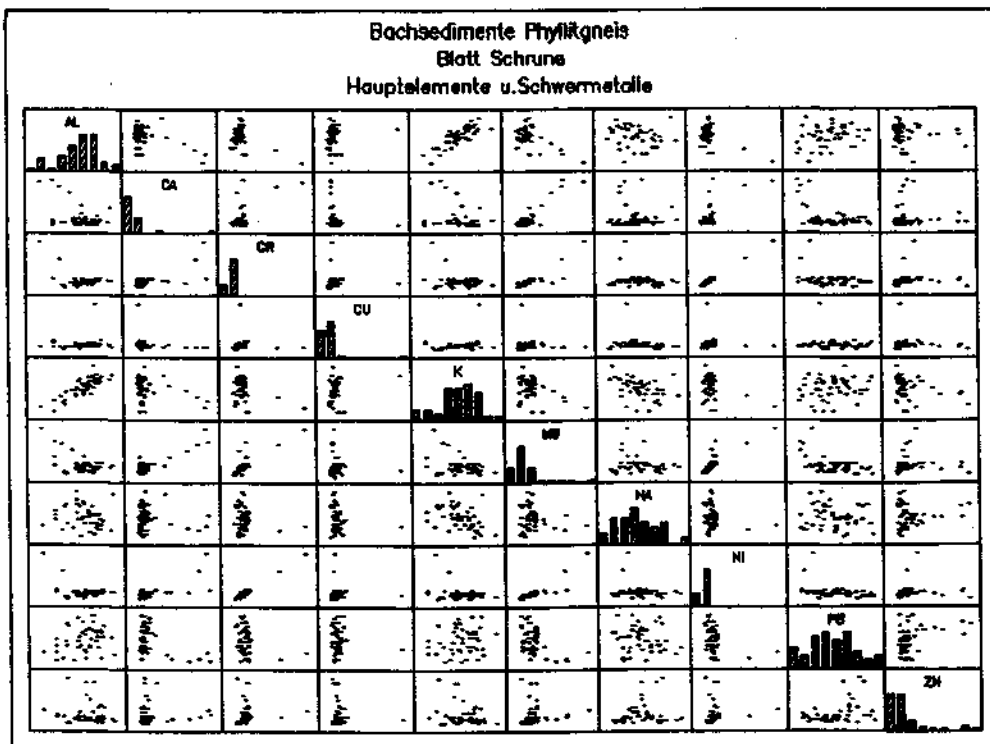 Bachsedimente Phyllitgneis
Blatt Schruns
Hauptelemente u.Schwermetalle
AL
CA
CR
CU
K
MG
NA
NI
PB
ZN